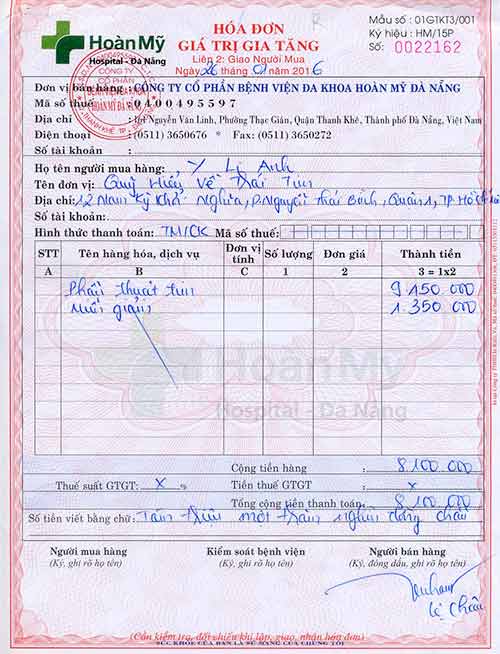 HoànMỹ
Hospital - Đà Nẵng
HÓA ĐƠN
GIÁ TRỊ GIA TĂNG
Liên 2: Giao Người Mua
Ngày 26 tháng 01 năm 2016
Mẫu số: 01GTKT3/001
Ký hiệu: HM/15P
Số: 0022162
CÔNG TY
CỔ PHẦN
BỆNH VIỆN ĐA KHOA
HOÀN MỸ ĐÀ NẴNG
Đơn vị bán hàng : CÔNG TY CỔ PHẦN BỆNH VIỆN ĐA KHOA HOÀN MỸ ĐÀ NẴNG
Mã số thuế : 0400495597
Địa chỉ : Nguyễn Văn Linh, Phường Thạc Gián, Quận Thanh Khê, Thành phố Đà Nẵng, Việt Nam
Điện thoại : (0511) 3650676 * Fax: (0511) 3650272
Số tài khoản :
Họ tên người mua hàng: Y Li Anh
Tên đơn vị: Quỹ Hiểu Về Trái Tim
Địa chỉ: 12 Nam Kỳ Khởi Nghĩa, P. Nguyễn Thái Bình, Quận 1, TP Hồ Chí
Số tài khoản:
Hình thức thanh toán: TM/CK Mã số thuế:
STT Tên hàng hóa, dịch vụ Đơn vị tính Số lượng Đơn giá Thành tiền
A B C 1 2 3 = 1x2
Phẫu thuật tim 9 150 000
Miễn giảm 1 350 000
HoànMỹ
Hospital - Đà Nẵng
Cộng tiền hàng : 8 100 000
Thuế suất GTGT: x % Tiền thuế GTGT : x
Tổng cộng tiền thanh toán: 8 100 000
Số tiền viết bằng chữ: Tám triệu một trăm nghìn đồng chẵn
Người mua hàng Kiểm soát bệnh viện Người bán hàng
(Ký, ghi rõ họ tên) (Ký, ghi rõ họ tên) (Ký, đóng dấu, ghi rõ họ tên)
Lệ Châu
(Cần kiểm tra, đối chiếu khi lập, giao, nhận hóa đơn)
SỨC KHỎE CỦA BẠN LÀ SỨ MẠNG CỦA CHÚNG TÔI